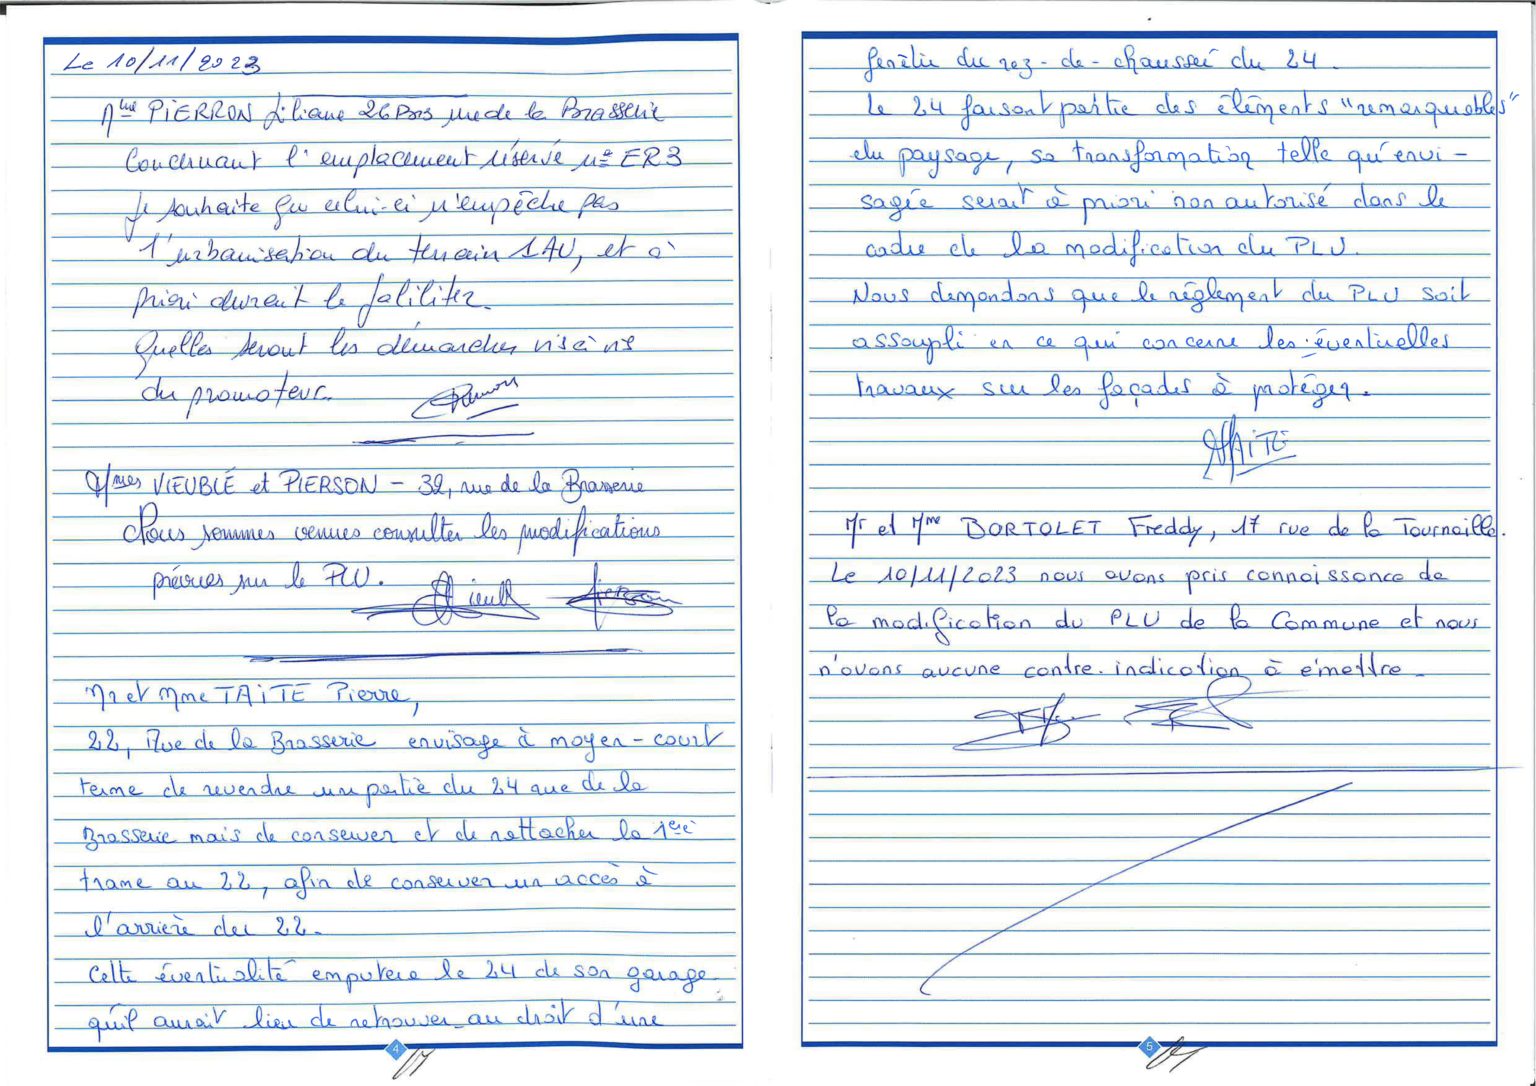 Le 10/11/2023
Mme PIERRON Liliane 26 Bis rue de la Brasserie
Concernant l'emplacement réservé n° ER3
Je souhaite que celui-ci n'empêche pas
l'urbanisation du terrain 1AU, et à
priori devrait le faliliter.
Quelles seront les démarches vis à vis
du promoteur.
Mmes VIEUBLÉ et PIERSON - 32, rue de la Brasserie
Nous sommes venues consulter les modifications
prévues sur le PLU.
Mr et Mme TAITE Pierre,
22, Rue de la Brasserie envisage à moyen-court
terme de revendre une partie du 24 rue de la
Brasserie mais de conserver et de rattacher la 1ere
trame au 22, afin de conserver un accès à
l'arrière du 22.
Cette éventualité emputera le 24 de son garage
qu'il aurait lieu de retrouver au droit d'une
4
fenêtre du rez-de-chaussé du 24.
Le 24 faisant partie des éléments "remarquables"
du paysage, sa transformation telle qu'envi-
sagée serait à priori non autorisé dans le
cadre de la modification du PLU.
Nous demandons que le réglement du PLU soit
assoupli en ce qui concerne les éventuelles
travaux sur les façades à protéger.
TAITE
Mr et Mme BORTOLET Freddy, 17 rue de la Tournaille.
Le 10/11/2023 nous avons pris connaissance de
la modification du PLU de la Commune et nous
n'avons aucune contre-indication à émettre.
5